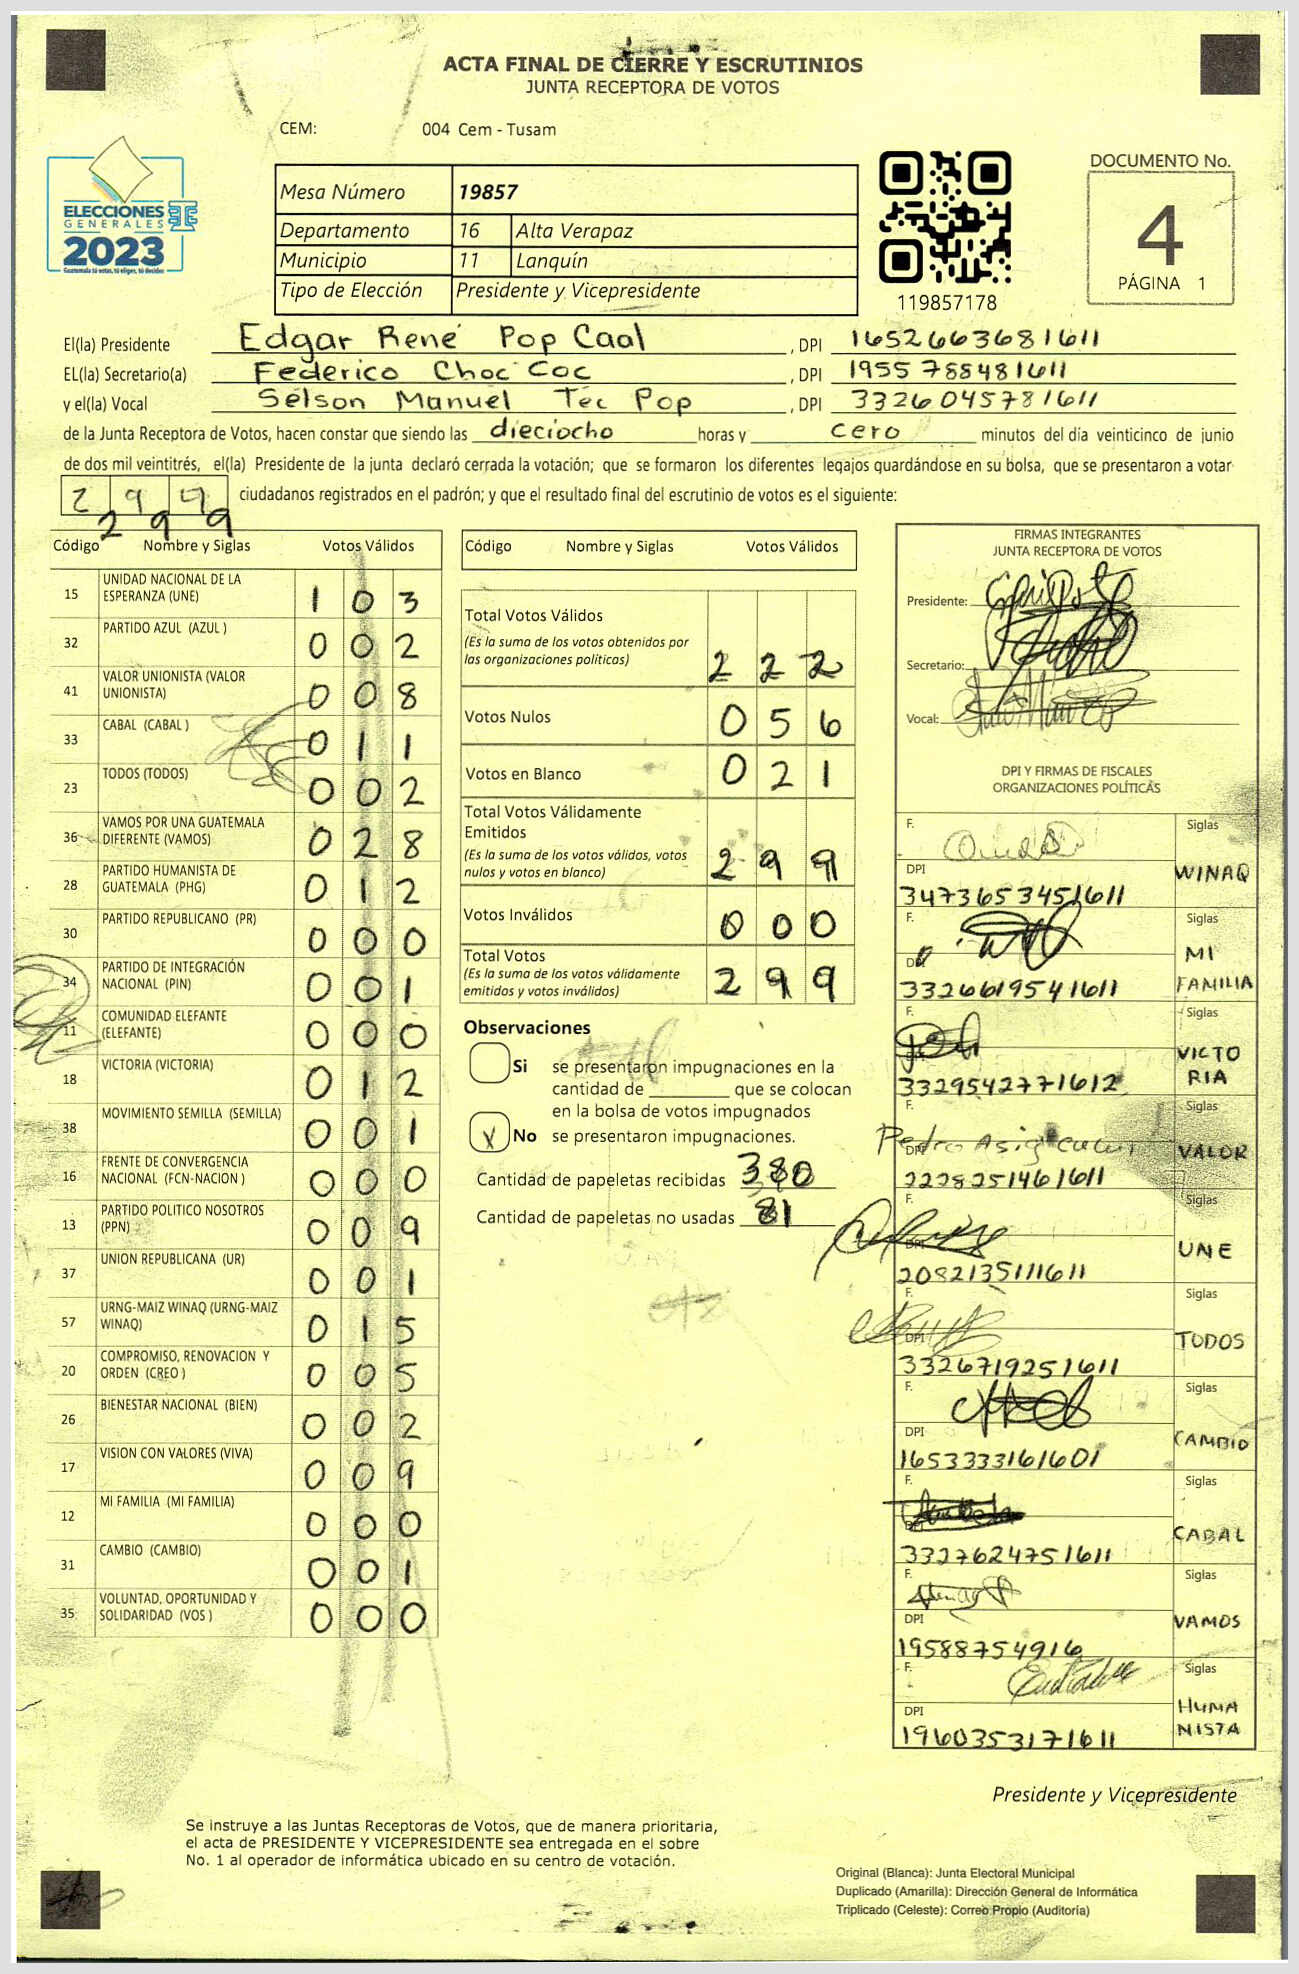 ACTA FINAL DE CIERRE Y ESCRUTINIOS
JUNTA RECEPTORA DE VOTOS
CEM: 004 Cem - Tusam
ELECCIONES
GENERALES
2023
Guatemala tú votas, tú eliges, tú decides
Mesa Número 19857
Departamento 16 Alta Verapaz
Municipio 11 Lanquín
Tipo de Elección Presidente y Vicepresidente
119857178
DOCUMENTO No.
4
PÁGINA 1
El(la) Presidente Edgar René Pop Caal , DPI 1652663681611
EL(la) Secretario(a) Federico Choc Coc , DPI 1955788481611
y el(la) Vocal Selson Manuel Tec Pop , DPI 3326045781611
de la Junta Receptora de Votos, hacen constar que siendo las dieciocho horas y cero minutos del día veinticinco de junio
de dos mil veintitrés, el(la) Presidente de la junta declaró cerrada la votación; que se formaron los diferentes legajos quardándose en su bolsa, que se presentaron a votar
299 ciudadanos registrados en el padrón; y que el resultado final del escrutinio de votos es el siguiente:
299
Código Nombre y Siglas Votos Válidos
15 UNIDAD NACIONAL DE LA ESPERANZA (UNE) 103
32 PARTIDO AZUL (AZUL ) 002
41 VALOR UNIONISTA (VALOR UNIONISTA) 008
33 CABAL (CABAL ) 011
23 TODOS (TODOS) 002
36 VAMOS POR UNA GUATEMALA DIFERENTE (VAMOS) 028
28 PARTIDO HUMANISTA DE GUATEMALA (PHG) 012
30 PARTIDO REPUBLICANO (PR) 000
34 PARTIDO DE INTEGRACIÓN NACIONAL (PIN) 001
11 COMUNIDAD ELEFANTE (ELEFANTE) 000
18 VICTORIA (VICTORIA) 012
38 MOVIMIENTO SEMILLA (SEMILLA) 001
16 FRENTE DE CONVERGENCIA NACIONAL (FCN-NACION ) 000
13 PARTIDO POLITICO NOSOTROS (PPN) 009
37 UNION REPUBLICANA (UR) 001
57 URNG-MAIZ WINAQ (URNG-MAIZ WINAQ) 015
20 COMPROMISO, RENOVACION Y ORDEN (CREO ) 005
26 BIENESTAR NACIONAL (BIEN) 002
17 VISION CON VALORES (VIVA) 009
12 MI FAMILIA (MI FAMILIA) 000
31 CAMBIO (CAMBIO) 001
35 VOLUNTAD, OPORTUNIDAD Y SOLIDARIDAD (VOS ) 000
Código Nombre y Siglas Votos Válidos
Total Votos Válidos
(Es la suma de los votos obtenidos por
las organizaciones políticas) 222
Votos Nulos 056
Votos en Blanco 021
Total Votos Válidamente
Emitidos
(Es la suma de los votos válidos, votos
nulos y votos en blanco) 299
Votos Inválidos 000
Total Votos
(Es la suma de los votos válidamente
emitidos y votos inválidos) 299
Observaciones
Si se presentaron impugnaciones en la
cantidad de ________ que se colocan
en la bolsa de votos impugnados
X No se presentaron impugnaciones.
Cantidad de papeletas recibidas 380
Cantidad de papeletas no usadas 81
FIRMAS INTEGRANTES
JUNTA RECEPTORA DE VOTOS
Presidente:
Secretario:
Vocal:
DPI Y FIRMAS DE FISCALES
ORGANIZACIONES POLÍTICAS
F. Siglas
DPI WINAQ
3473653451611
F. Siglas
DPI MI
3326619541611 FAMILIA
F. Siglas
VICTO
3329542771612 RIA
F. Siglas
Pedro Asig
DPI VALOR
2228251461611
F. Siglas
DPI UNE
2082135111611
F. Siglas
DPI TODOS
3326719251611
F. Siglas
DPI CAMBIO
1653333161601
F. Siglas
DPI CABAL
3327624751611
F. Siglas
DPI VAMOS
19588754916
F. Siglas
DPI HUMA
1960353171611 NISTA
Presidente y Vicepresidente
Se instruye a las Juntas Receptoras de Votos, que de manera prioritaria,
el acta de PRESIDENTE Y VICEPRESIDENTE sea entregada en el sobre
No. 1 al operador de informática ubicado en su centro de votación.
Original (Blanca): Junta Electoral Municipal
Duplicado (Amarilla): Dirección General de Informática
Triplicado (Celeste): Correo Propio (Auditoría)